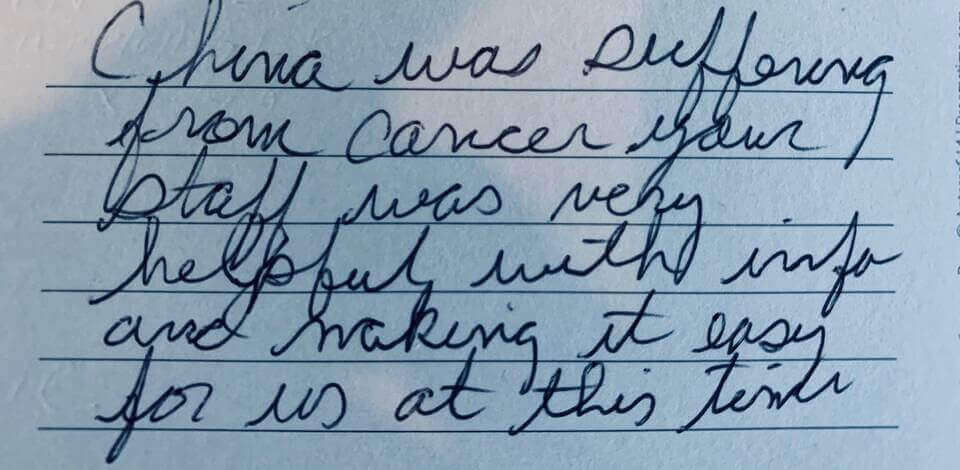 China was suffering
from cancer your
staff was very
helpful with info
and making it easy
for us at this time